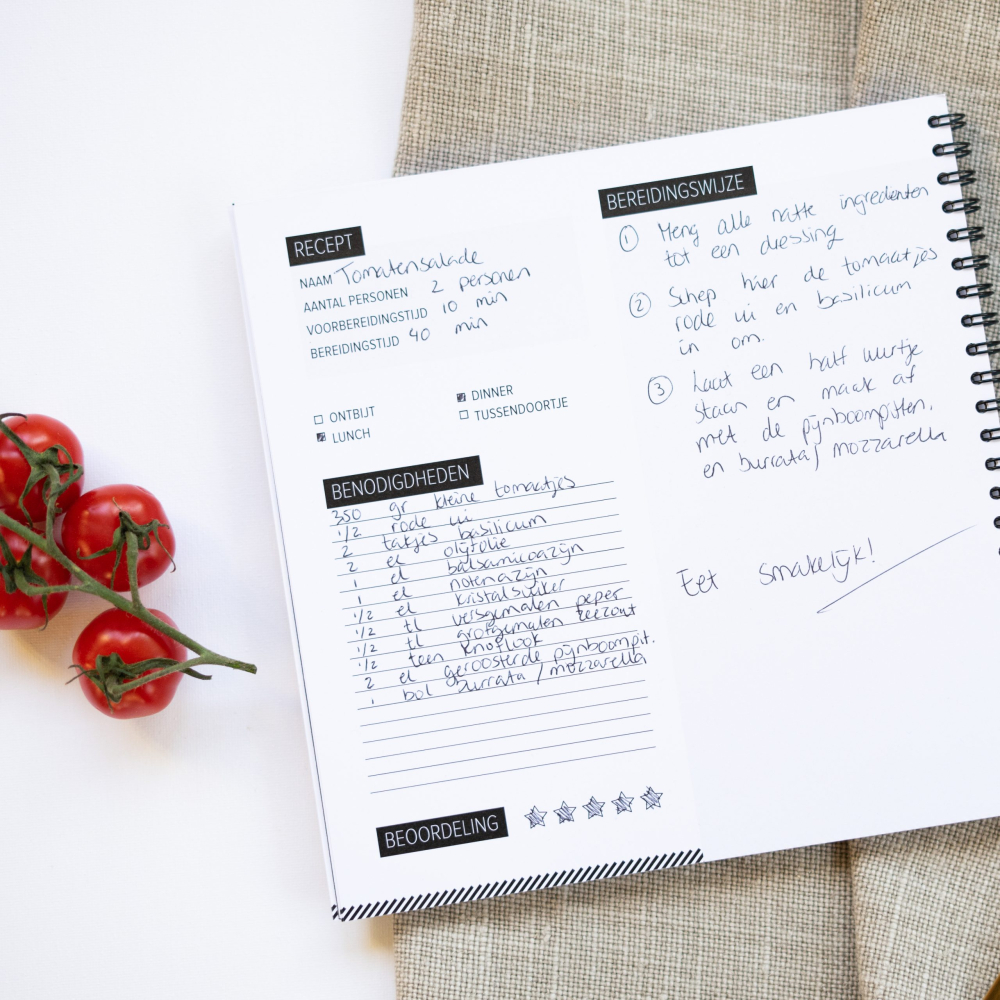 RECEPT
NAAM Tomatensalade
AANTAL PERSONEN 2 personen
VOORBEREIDINGSTIJD 10 min
BEREIDINGSTIJD 40 min
ONTBIJT
LUNCH
DINNER
TUSSENDOORTJE
BENODIGDHEDEN
350 gr kleine tomaatjes
1/2 rode ui
2 takjes basilicum
2 el olijfolie
1 el balsamicoazijn
1 el notenazijn
1/2 el kristalsuiker
1/2 tl versgemalen peper
1/2 tl grofgemalen zeezout
1/2 teen knoflook
2 el geroosterde pijnboompit.
1 bol burrata / mozzarella
BEOORDELING
BEREIDINGSWIJZE
1 Meng alle natte ingredienten
tot een dressing
2 Schep hier de tomaatjes
rode ui en basilicum
in om.
3 Laat een half uurtje
staan en maak af
met de pijnboompitten,
en burrata/mozzarella
Eet smakelijk!